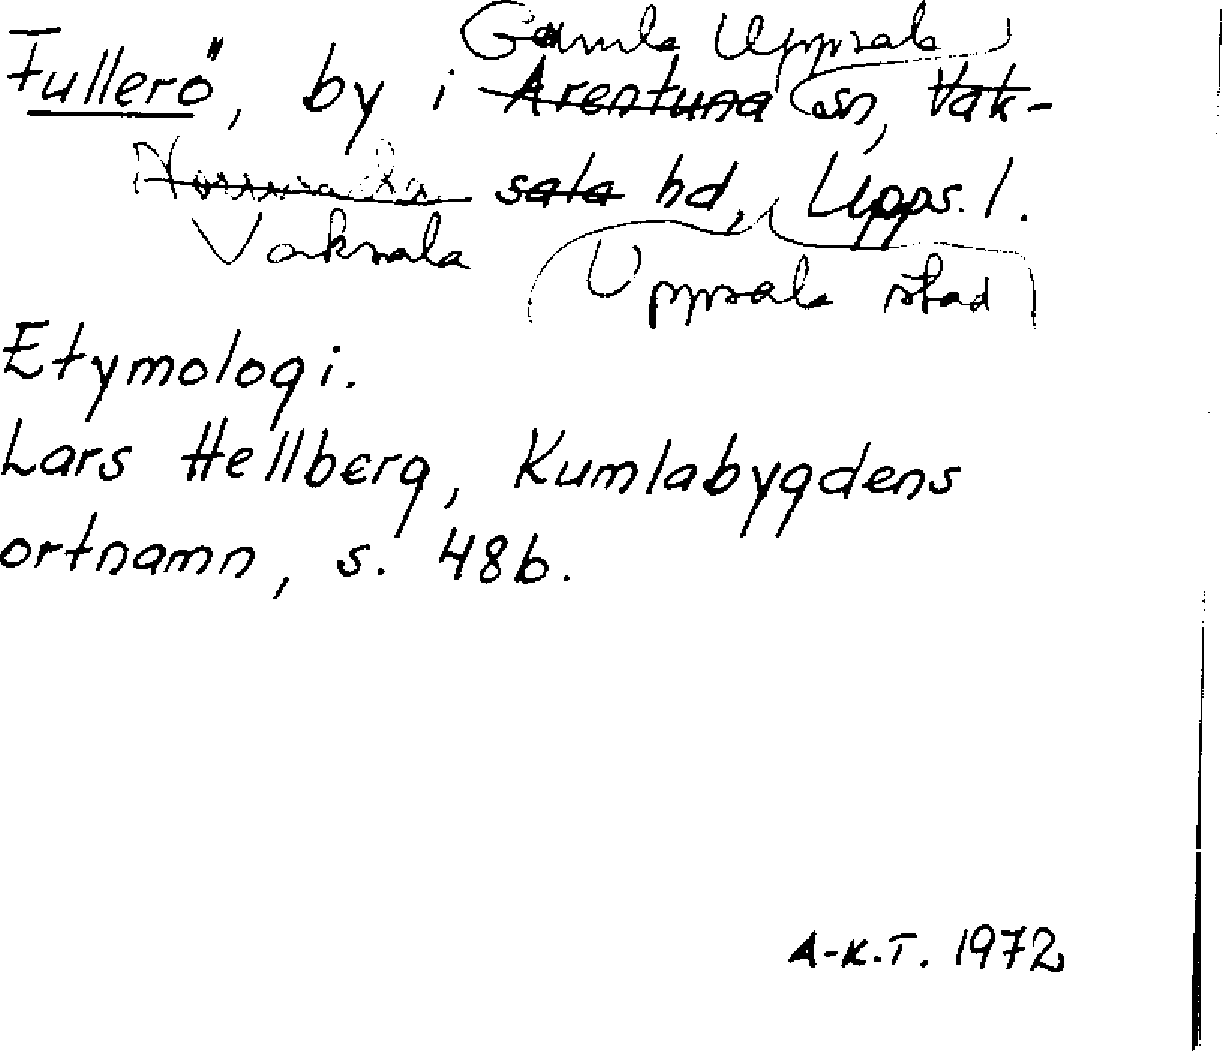 Gamla Uppsala
Fullerö, by i Ärentuna sn, Vak-
Norunda sala hd, Upps. l.
Vaksala Uppsala stad
Etymologi.
Lars Hellberg, Kumlabygdens
ortnamn, s. 48b.
A-K.T. 1972